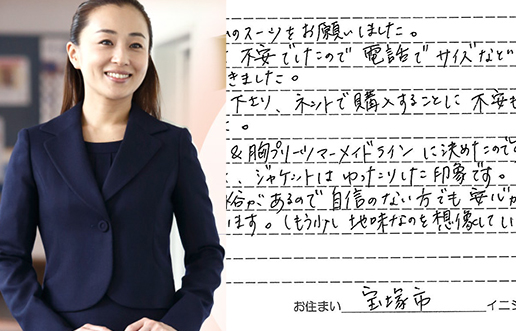 のスーツをお願いしました。
不安でしたので電話でサイズなど
きました。
下さり、ネットで購入することに不安も
。
&胸プリーツマーメイドラインに決めたので
、ジャケットはゆったりした印象です。
があるので自信のない方でも安心か
います。(もう少し地味なのを想像してい
お住まい 宝塚市 イニシ